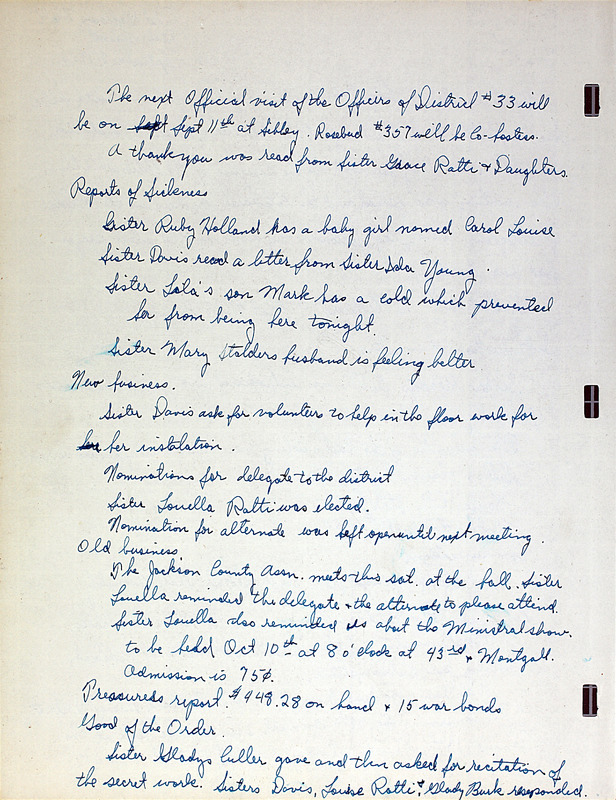 The next Official visit of the Officers of District #33 will
be on Sept Sept 11th at Sibley. Rosebud #357 will be Co-hostess.
A thank you was read from Sister Grace Ratti & Daughters.
Reports of Sickness
Sister Ruby Holland has a baby girl named Carol Louise
Sister Davis read a letter from Sister Lola Young.
Sister Lola's son Mark has a cold which prevented
her from being here tonight.
Sister Mary Stalders husband is feeling better
New business.
Sister Davis ask for volunteers to help in the floor work for
her instalation.
Nominations for delegate to the district
Sister Louella Ratti was elected.
Nomination for alternate was left open until next meeting.
Old business
The Jackson County Assn. meets this sat. at the hall. Sister
Louella reminded the delegate & the alternate to please attend.
Sister Louella also reminded us about the Ministral show.
to be held Oct 10th at 8 o'clock at 43rd & Montgall.
Admission is 75¢.
Treasureds report. $448.28 on hand & 15 war bonds
Good of the Order.
Sister Gladys gave and then asked for recitation of
the secret work. Sisters Davis, Louise Ratti & Glady Burk responded.